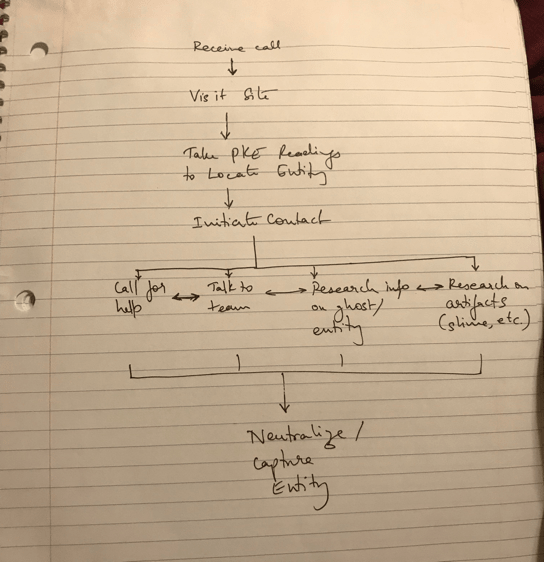 Receive call
Visit Site
Take PKE Readings
to Locate Entity
Initiate Contact
Call for
help
Talk to
team
Research info
on ghost/
entity
Research on
artifacts
(slime, etc.)
Neutralize /
Capture
Entity